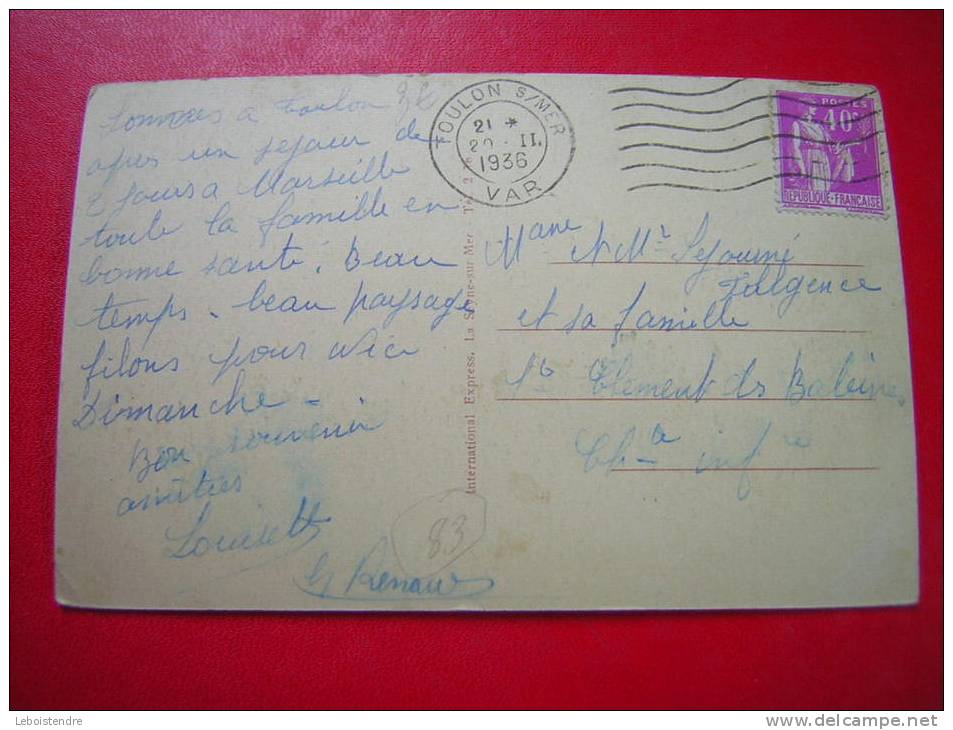 Sommes a Toulon
apres un sejour de
2 jours a Marseille
toute la famille en
bonne santé. Beau
temps. beau paysage
filons pour Nice
Dimanche -
Bon souvenir
amitiés
Louisette
Renaud
TOULON S/MER
21 *
20 - II.
1936
VAR
POSTES
40c
REPUBLIQUE-FRANCAISE
International Express, La Seyne-sur-Mer
Mme et Mr Sejourné
Fulgence
et sa famille
St Clement des Baleines
Chte infre
83
Leboistendre
www.delcampe.net